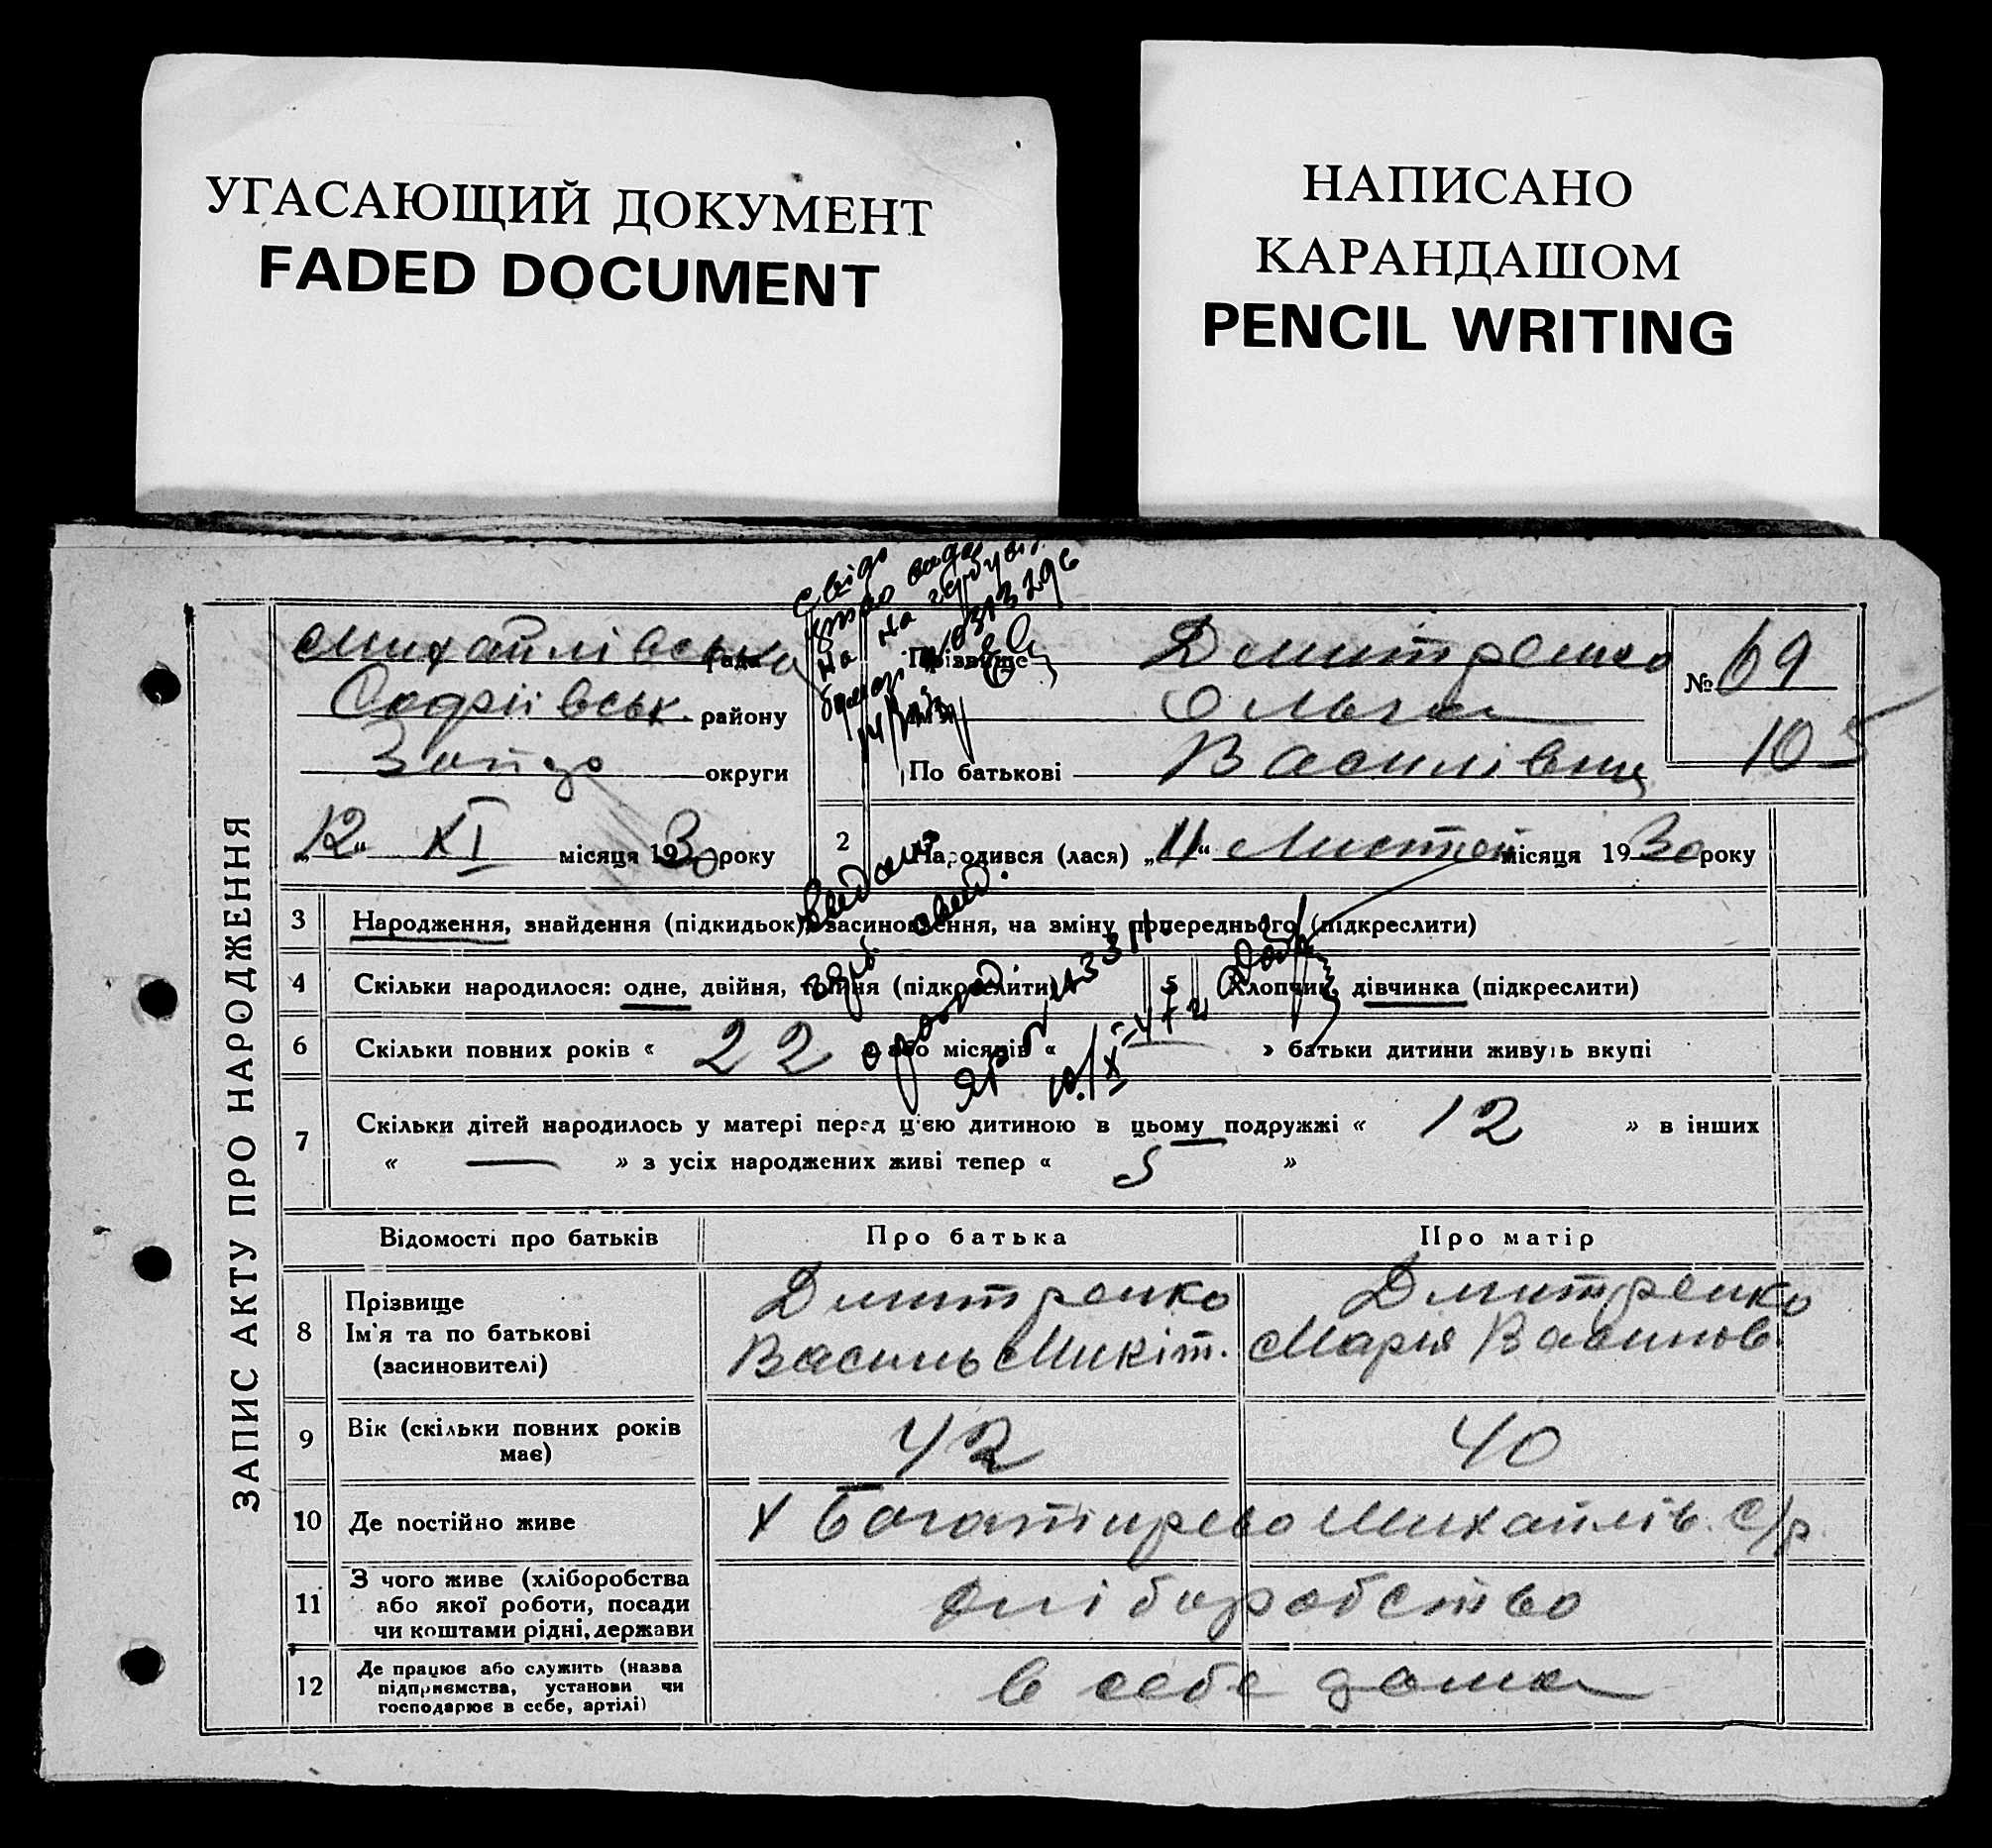 УГАСАЮЩИЙ ДОКУМЕНТ
FADED DOCUMENT
НАПИСАНО
КАРАНДАШОМ
PENCIL WRITING
ЗАПИС АКТУ ПРО НАРОДЖЕННЯ
Михайлівська рада
Софіївськ. району
округи
„12“ XI місяця 1930 року
Прізвище Дмитренко
Ольга
По батькові Василівна
№ 69
105
2 Народився (лася) „11“ місяця 1930 року
3 Народження, знайдення (підкидьок), засиновлення, на зміну попереднього (підкреслити)
4 Скільки народилося: одне, двійня, трійня (підкреслити)
5 Хлопчик, дівчинка (підкреслити)
6 Скільки повних років « 22 » або місяців « — » батьки дитини живуть вкупі
7 Скільки дітей народилось у матері перед цією дитиною в цьому подружжі « 12 » в інших
« — » з усіх народжених живі тепер « 5 »
Відомості про батьків Про батька Про матір
8 Прізвище
Ім'я та по батькові
(засиновителі)
Дмитренко
Василь Микіт.
Дмитренко
Марія Васильов.
9 Вік (скільки повних років
має)
42 40
10 Де постійно живе х Богатирево Михайлів. С/р.
11 З чого живе (хліборобства
або якої роботи, посади
чи коштами рідні, держави
хліборобство
12 Де працює або служить (назва
підприємства, установи чи
господарює в себе, артілі)
в себе дома